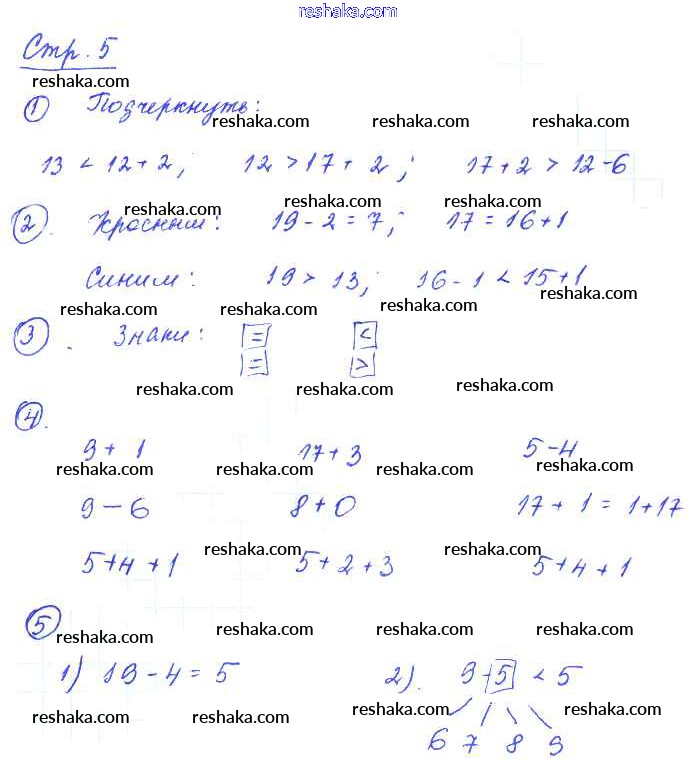 reshaka.com
Стр. 5
reshaka.com
① Подчеркнуть:
reshaka.com reshaka.com reshaka.com
13 < 12 + 2; 12 > 17 + 2; 17 + 2 > 12 - 6
reshaka.com reshaka.com reshaka.com
②. Красным: 19 - 2 = 7; 17 = 16 + 1
reshaka.com reshaka.com
Синим: 19 > 13; 16 - 1 < 15 + 1
reshaka.com reshaka.com reshaka.com reshaka.com
③. Знаки: = <
= >
reshaka.com reshaka.com reshaka.com
④.
9 + 1 17 + 3 5 - 4
reshaka.com reshaka.com reshaka.com reshaka.com
9 - 6 8 + 0 17 + 1 = 1 + 17
5 + 4 + 1 5 + 2 + 3 5 + 4 + 1
reshaka.com reshaka.com reshaka.com
⑤
reshaka.com reshaka.com reshaka.com reshaka.com
1) 19 - 4 = 5 2). 9 - 5 < 5
reshaka.com reshaka.com reshaka.com reshaka.com
6 7 8 9